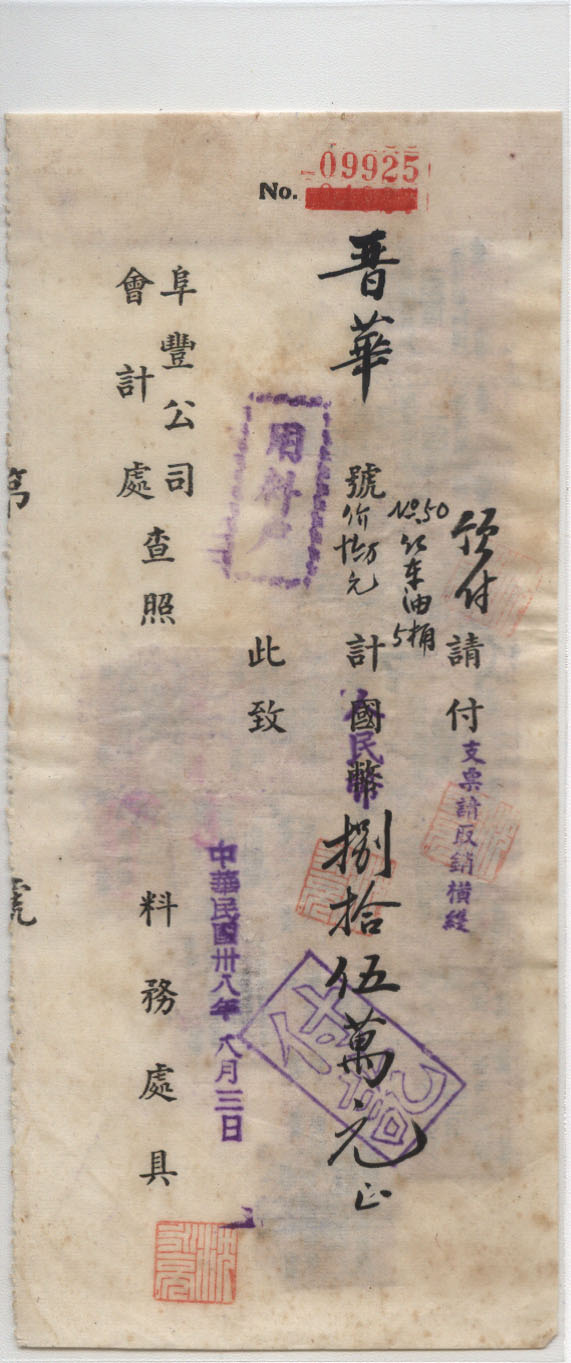 No. 09925
預付請付
支票請取銷橫綫
No.50 红车油5桶
晋華號计國幣捌拾伍萬元正
人民幣
价拾万元
付訖
用料户
此致
中華民國卅八年八月三日
阜豐公司
會計處查照
料務處具
第 號